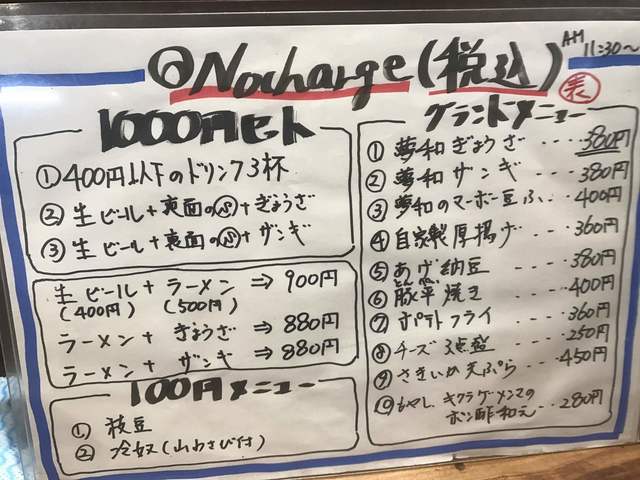 ◎Nocharge(税込)
AM
11:30〜
表
1000円セット
①400円以下のドリンク3杯
②生ビール+裏面の⑱+ぎょうざ
③生ビール+裏面の⑱+ザンギ
生ビール+ラーメン⇒900円
(400円) (500円)
ラーメン+ぎょうざ⇒880円
ラーメン+ザンギ⇒880円
100円メニュー
①枝豆
②冷奴(山わさび付)
グランドメニュー
①夢和ぎょうざ...380円
②夢和ザンギ....380円
③夢和のマーボー豆ふ..400円
④自家製厚揚げ...360円
⑤あげ納豆....380円
とんぺい
⑥豚平焼き....400円
⑦ポテトフライ....360円
⑧チーズ3点盛....250円
⑨さきいか天ぷら....450円
⑩もやし、キクラゲ、メンマの
ポン酢和え...280円